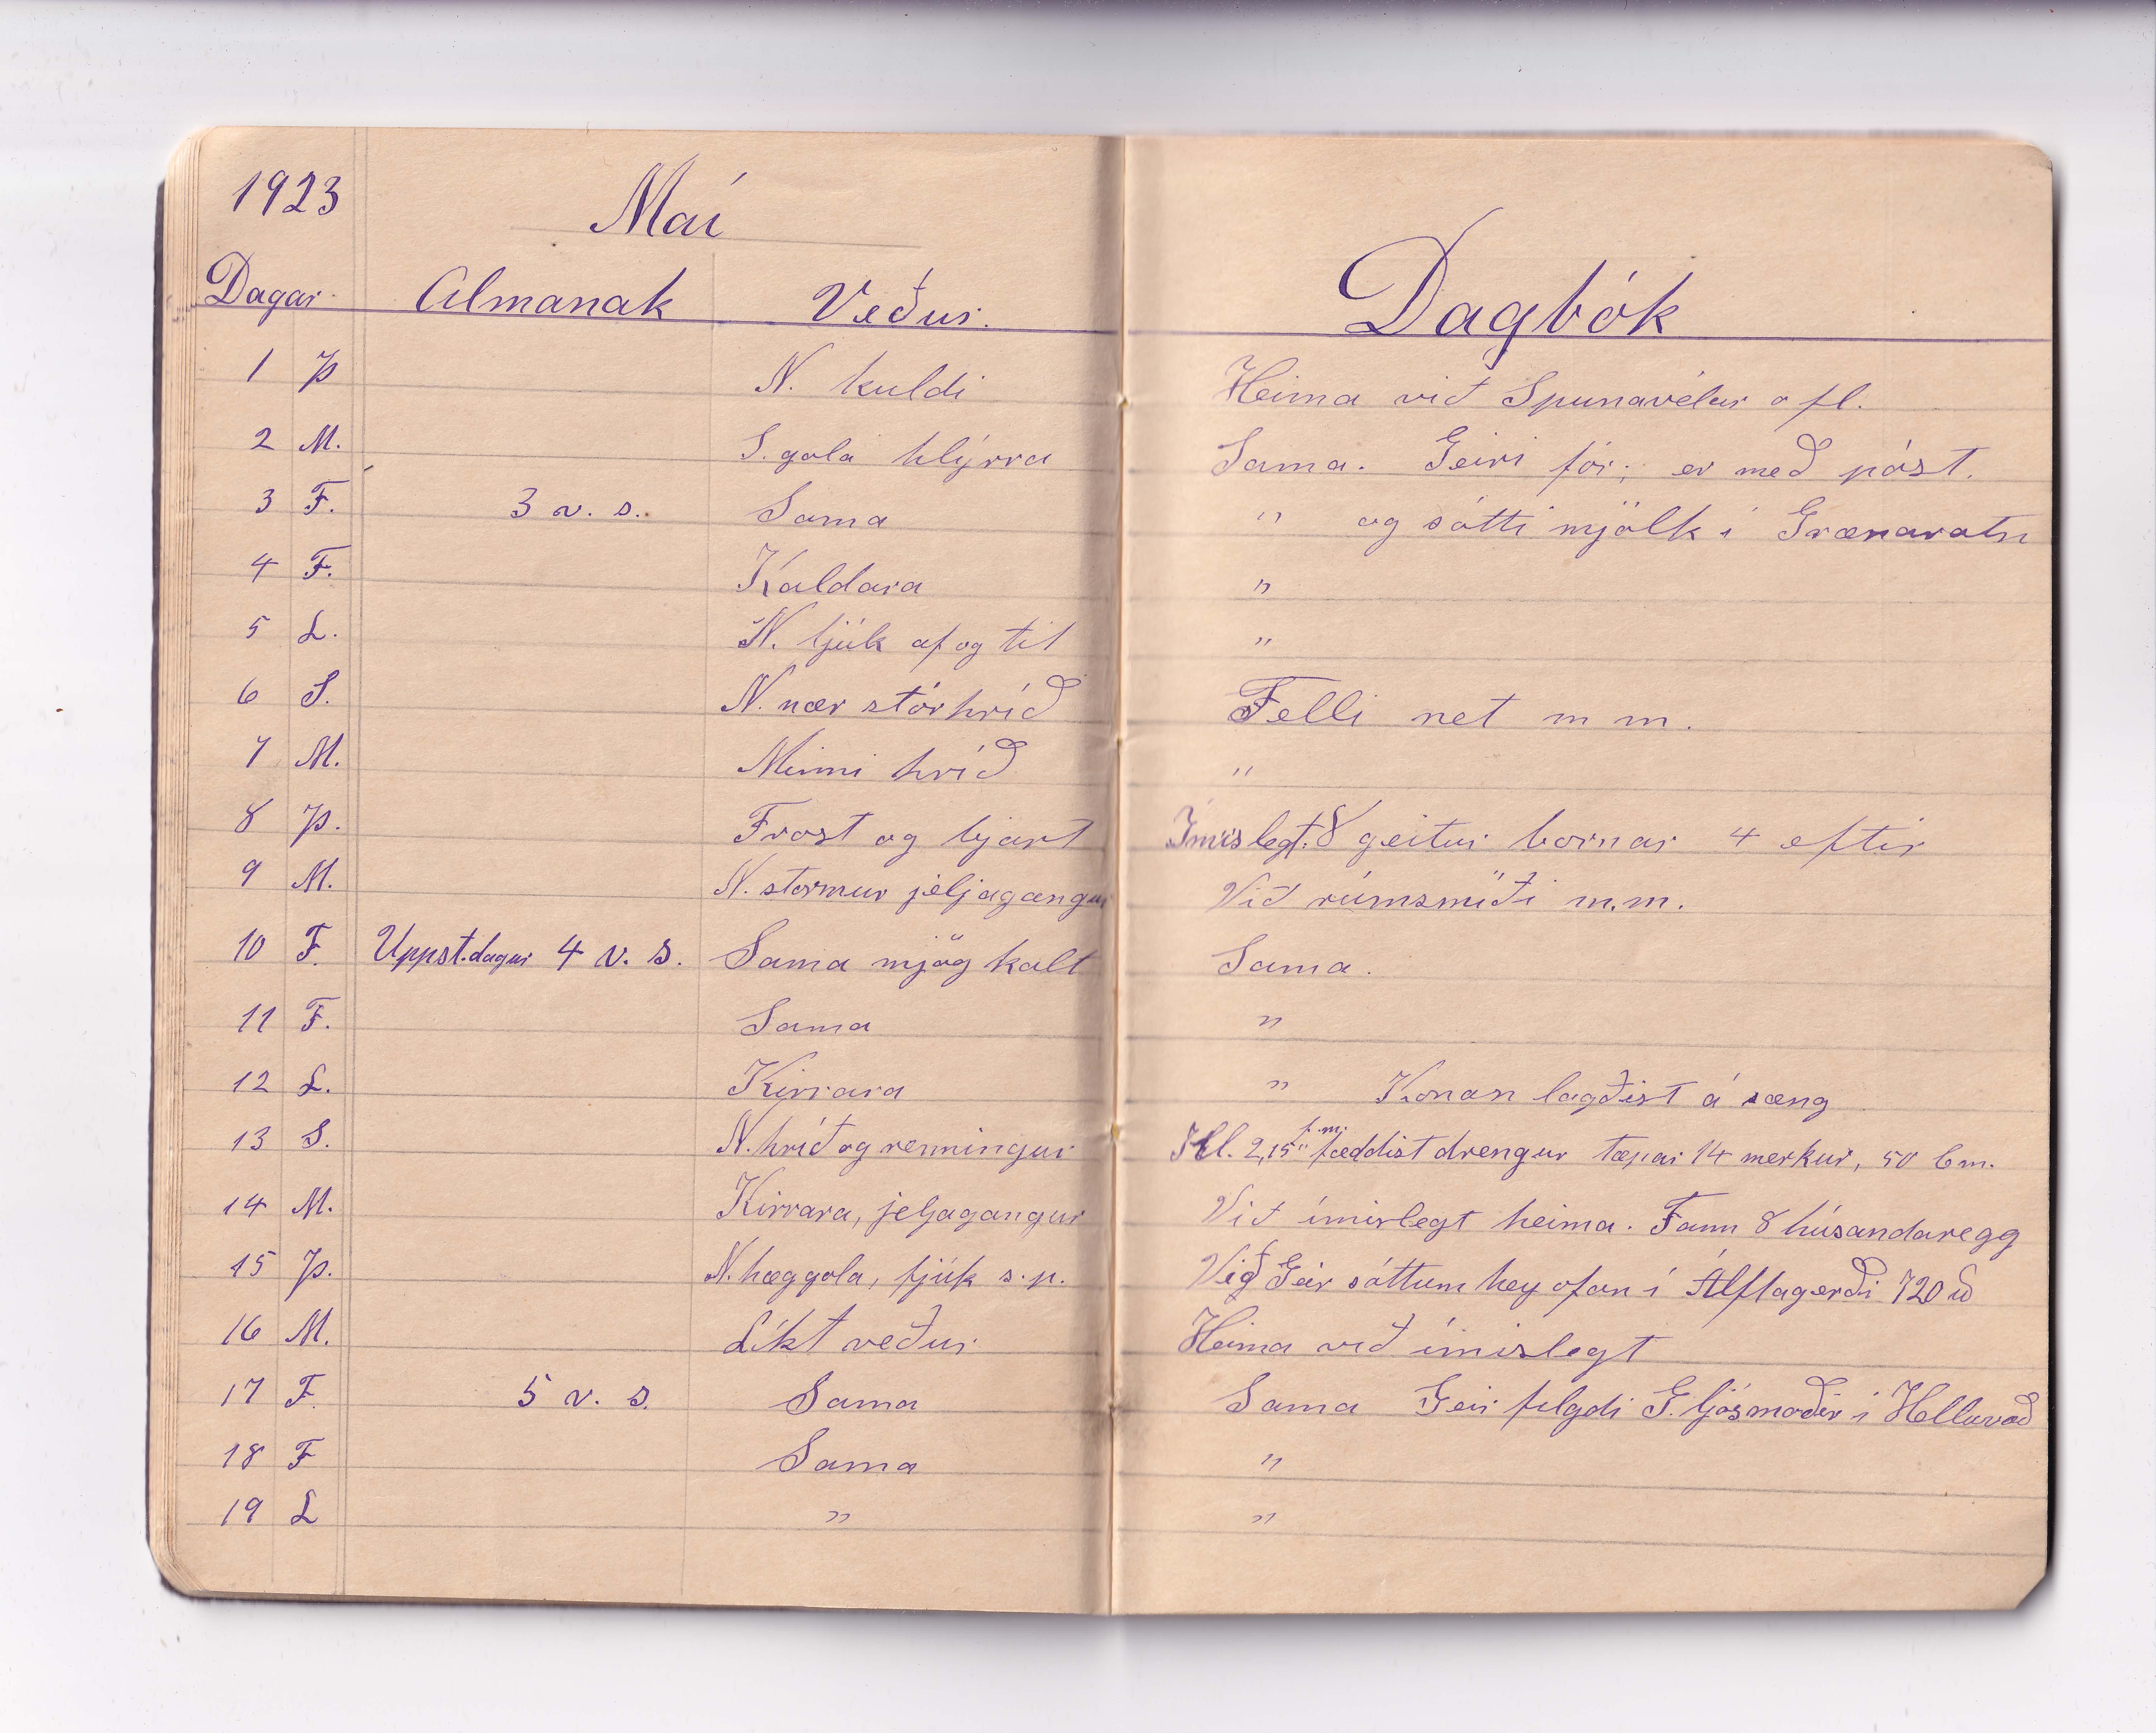 1923
Maí
Dagar Almanak Veður.
Dagbók
1 Þ N. kuldi Heima við Spunavélar o fl.
2 M. S. gola hlýrra Sama. Geiri fór; er með póst.
3 F. 3 v. s. Sama " og sótti mjólk í Grænavatn
4 F. Kaldara "
5 L. N. fjúk af og til "
6 S. N. nær stórhríð Felli net m m.
7 M. Minni hríð "
8 Þ. Frost og bjart Ímislegt. 8 geitur bornar 4 eftir
9 M. N. stormur jeljagangur Við rúmsmíði m.m.
10 F. Uppst.dagur 4 v. s. Sama mjög kalt Sama.
11 F. Sama "
12 L. Kirrara " Konan lagðist á sæng
13 S. N. hríð og renningur Kl. 2,15" f.m. fæddist drengur tæpar 14 merkur, 50 Cm.
14 M. Kirrara, jeljagangur Við ímislegt heima. Fann 8 húsandaregg
15 Þ. N. hæggola, fjúk s.p. Við Geir sóttum hey ofan í Álftagerði 720 ℔
16 M. Líkt veður Heima við ímislegt
17 F. 5 v. s. Sama Sama Geir filgdi G. ljósmóðir í Helluvað
18 F Sama "
19 L " "